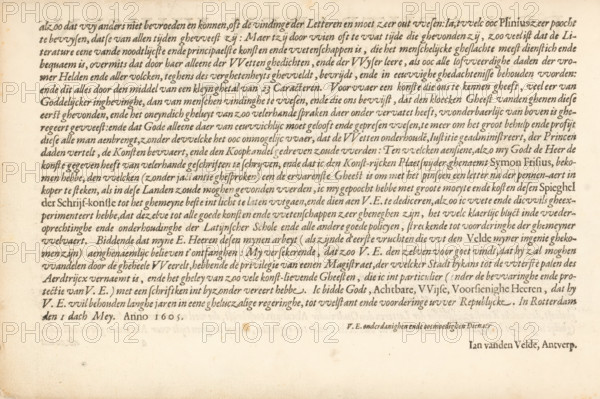 alzoo dat wy anders niet bevroeden en konnen, oft de vindinge der Letteren en moet zeer out wesen: Ia, twelc ooc Plinius zeer poocht
te bewysen, datse van allen tijden gheweest zij: Maer tzij door wien oft te wat tijde die ghevonden zij, zoo verlist dat de Li-
terature eene vande noodlijcste ende principaelste konsten ende wetenschappen is, die het menschelijcke gheslachte meest dienstich ende
bequaem is, overmits dat door haer alleene der Wetten ghedichten, ende der Wyser leere, als ooc alle lofweerdighe daden der vro-
mer Helden ende aller volcken, teghens des verghetenheyts ghewelt, bevrijdt, ende in eeuwighe ghedachtenisse behouden worden:
ende dit alles door den middel van een kleyn ghetal van 23 Caracteren. Voorwaer een konste die ons te kennen gheeft, veel eer van
Goddelijcker inghevinghe, dan van menschen vindinghe te wesen, ende die ons bewijst, dat den kloecken Gheest vanden ghenen diese
eerst ghevonden, ende het oneyndich gheluyt van zoo velerhande spraken daer onder vervatet heeft, wonderbaerlijc van boven is ghe-
regeert geweest: ende dat Gode alleene daer van eeuwichlijc moet gelooft ende gepresen wesen, te meer om het groot behulp ende profijt
diese alle man aenbrengt, zonder de welcke het ooc onmogelijc waer, dat de Wetten onderhoudē, Iustitie geadministreert, der Princen
daden vertelt, de Konsten bewaert, ende den Koophandel gedreven zoude worden: Ten welcken aensiene, alzo my Godt de Heer de
konste gegeven heeft van velerhande geschriften te schrijven, ende dat ic den Konst-rijcken Plaetsnijder ghenaemt Symon Frisius, beko-
men hebbe, den welcken (zonder jactantie ghesproken) een de ervarenste Gheest is om met het pinsoen een letter na der pennen-aert in
koper te steken, als in dese Landen zoude mogen gevonden werden, ic my gepoocht hebbe met groote moeyte ende kosten desen Spieghel
der Schrijf-konste tot het ghemeyne beste int licht te laten uytgaen, ende dien aen V. E. te dediceren, alzo ic wete ende dicwils gheex-
perimenteert hebbe, dat dezelve tot alle goede konsten ende wetenschappen zeer gheneghen zijn, het welc klaerlijc blijct inde weder-
oprechtinghe ende onderhoudinghe der Latijnscher Schole ende alle andere goede policyen, streckende tot vorderinghe der ghemeyner
welvaert. Biddende dat myne E. Heeren desen mynen arbeyt (als zijnde d'eerste vruchten die wt den Velde myner ingenie gheko-
men zijn) aenghenaemlijc believen t'ontfanghen: My versekerende, dat zoo V. E. den zelven voor goet vindt, dat hy zal moghen
wandelen door de gheheele Weerelt, hebbende de privilegie van eenen Magistraet, der welcker Stadt bykans tot de uiterste palen des
Aerdtrijcx vernaemt is, ende het gheley van zoo vele konst-lievende Gheesten, die ic int particulier (onder de bewaringhe ende pro-
tectie van V. E.) met een schriftken int byzonder vereert hebbe. Ic bidde Gode, Achtbare, Wijse, Voorsienighe Heeren, dat hy
V. E. wil behouden langhe jaren in eene gheluczalige regeringhe, tot welstant ende voorderinge uwer Republijcke. In Rotterdam
den 1 dach Mey. Anno 1605.
V. E. onderdanighen ende ootmoedighen Dienaer
Ian vanden Velde, Antverp.